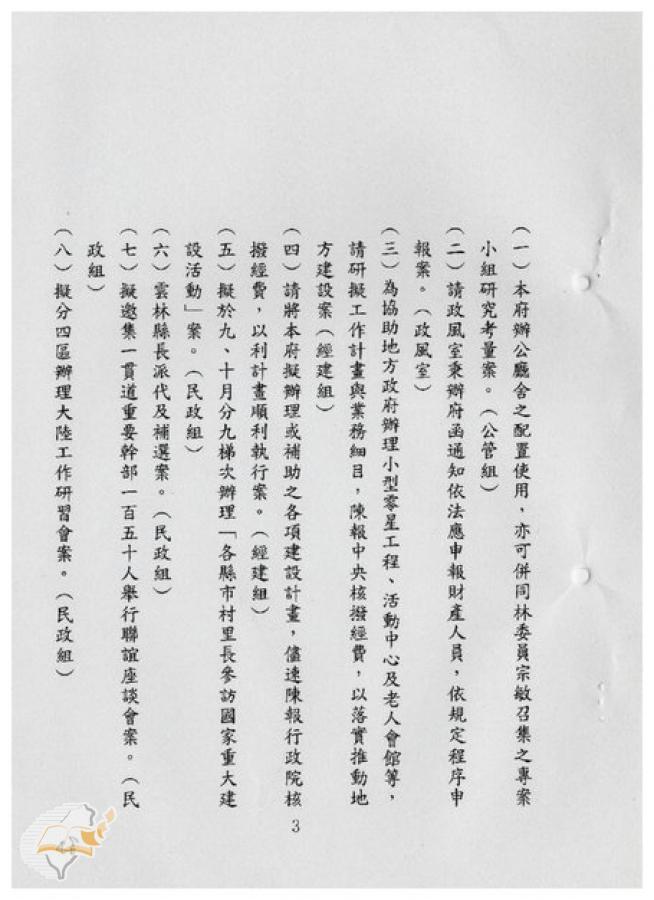 （一）本府辦公廳舍之配置使用，亦可併同林委員宗敏召集之專案
小組研究考量案。（公管組）
（二）請政風室秉辦府函通知依法應申報財產人員，依規定程序申
報案。（政風室）
（三）為協助地方政府辦理小型零星工程、活動中心及老人會館等，
請研擬工作計畫與業務細目，陳報中央核撥經費，以落實推動地
方建設案（經建組）
（四）請將本府擬辦理或補助之各項建設計畫，儘速陳報行政院核
撥經費，以利計畫順利執行案。（經建組）
（五）擬於九、十月分九梯次辦理「各縣市村里長參訪國家重大建
設活動」案。（民政組）
（六）雲林縣長派代及補選案。（民政組）
（七）擬邀集一貫道重要幹部一百五十人舉行聯誼座談會案。（民
政組）
（八）擬分四區辦理大陸工作研習會案。（民政組）
3